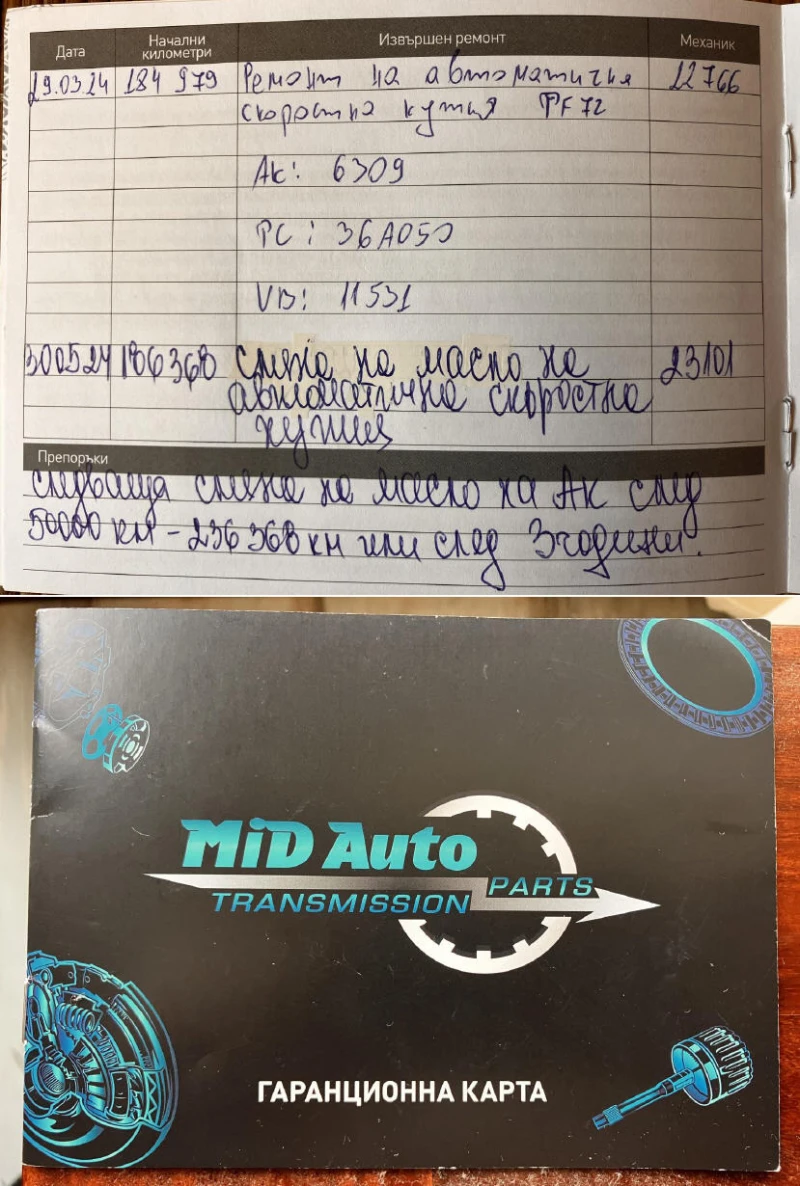 Дата Начални километри Извършен ремонт Механик
29.03.24 184 979 Ремонт на автоматична 12766
скоростна кутия TF72
АК: 6309
PC: 36A050
VB: 11531
300524 186368 смяна на масло на 23101
автоматична скоростна
кутия
Препоръки
следваща смяна на масло на АК след
50000 км - 236 368 км или след 3 години.
MiD Auto
TRANSMISSION PARTS
ГАРАНЦИОННА КАРТА